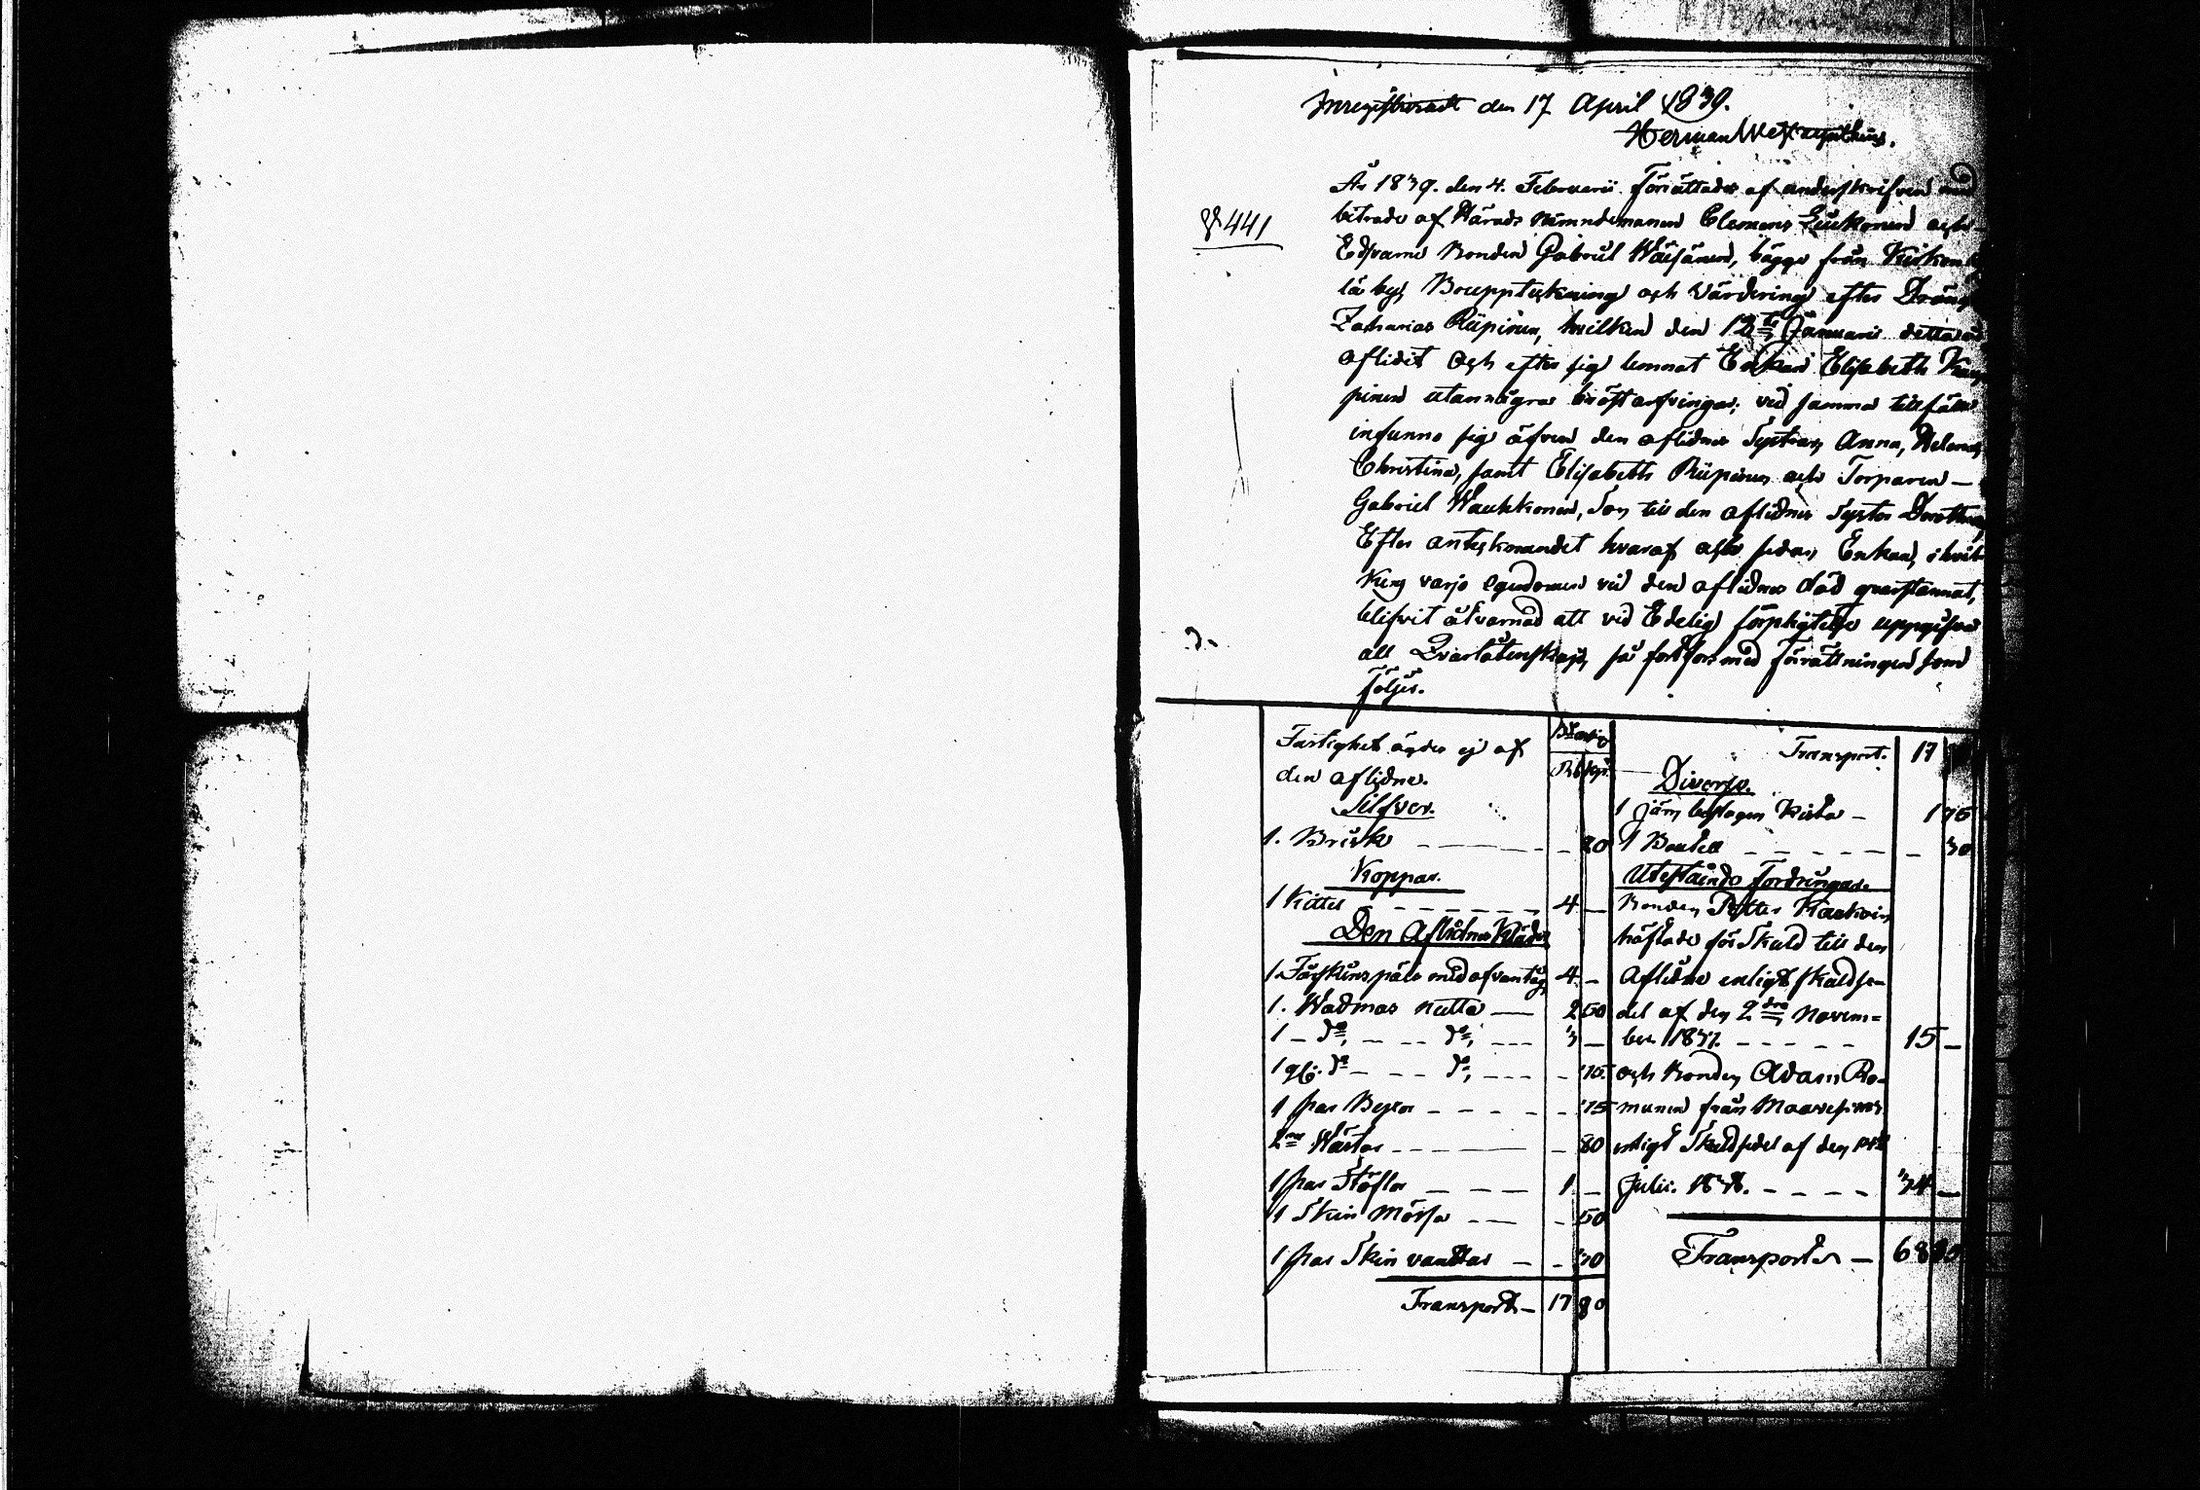 Inregistreradt den 17 April 1839.
Herman
§ 441
År 1839. den 4. Februarii förrättades af underskrifven med
biträde af Härads nämndemannen Clemens Luukonen och
Edsvarne Bonden Gabriel Wäisänen, bägge från
lä by, Bouppteckning och Värdering efter Dräng
Zacharias Riipinen, hvilken den 12te Januarii detta år
aflidit och efter sig lemnat Enkan Elisabeth
pinen utan några bröstarfvingar; vid samma tillfälle
infunno sig äfven den aflidnes Systrar, Anna, Helena,
Christina, samt Elisabeth Riipinen och Torparen —
Gabriel Waukkonen, Son till den aflidnes Syster Dorothea,
Efter antecknandet hvaraf och sedan Enkan, i hvil-
kens varjo egendomen vid den aflidnes död qvarstannat,
blifvit åtvarnad att vid Edelig förpligtelse uppgifva
all Qvarlåtenskap, så fortfors med förrättningen som
följer.
Fastighet ägdes ej af
den aflidne.
Silfver.
1. Brisk — 80
Koppar.
1 Kittel — 4 —
Den Aflidnes Kläder
1. Fårskinspäls med ofvantyg 4. —
1. Wadmas rutta — 2 50
1 — do, — do, — 3 —
1 do — do, —
1 par Byxor — 75
2ne Wästar — 80
1 par Stöflor — 1. —
1 Skin Mössa — 50
1 par Skin vanttar — 30
Transport — 17 80
Transport. 17
Diverse.
1 järn beslagen Kista — 1 75
1 Boutell — 30
Utestående Fordringar.
Bonden Petter
häftade för Skuld till den
Aflidne enligt skuldse-
del af den 2dra Novem-
ber 1837. — 15 —
och Bonden Adam Ro-
munen från
enligt Skuldsedel af den
Julii. 1838. — 34 —
Transport — 68